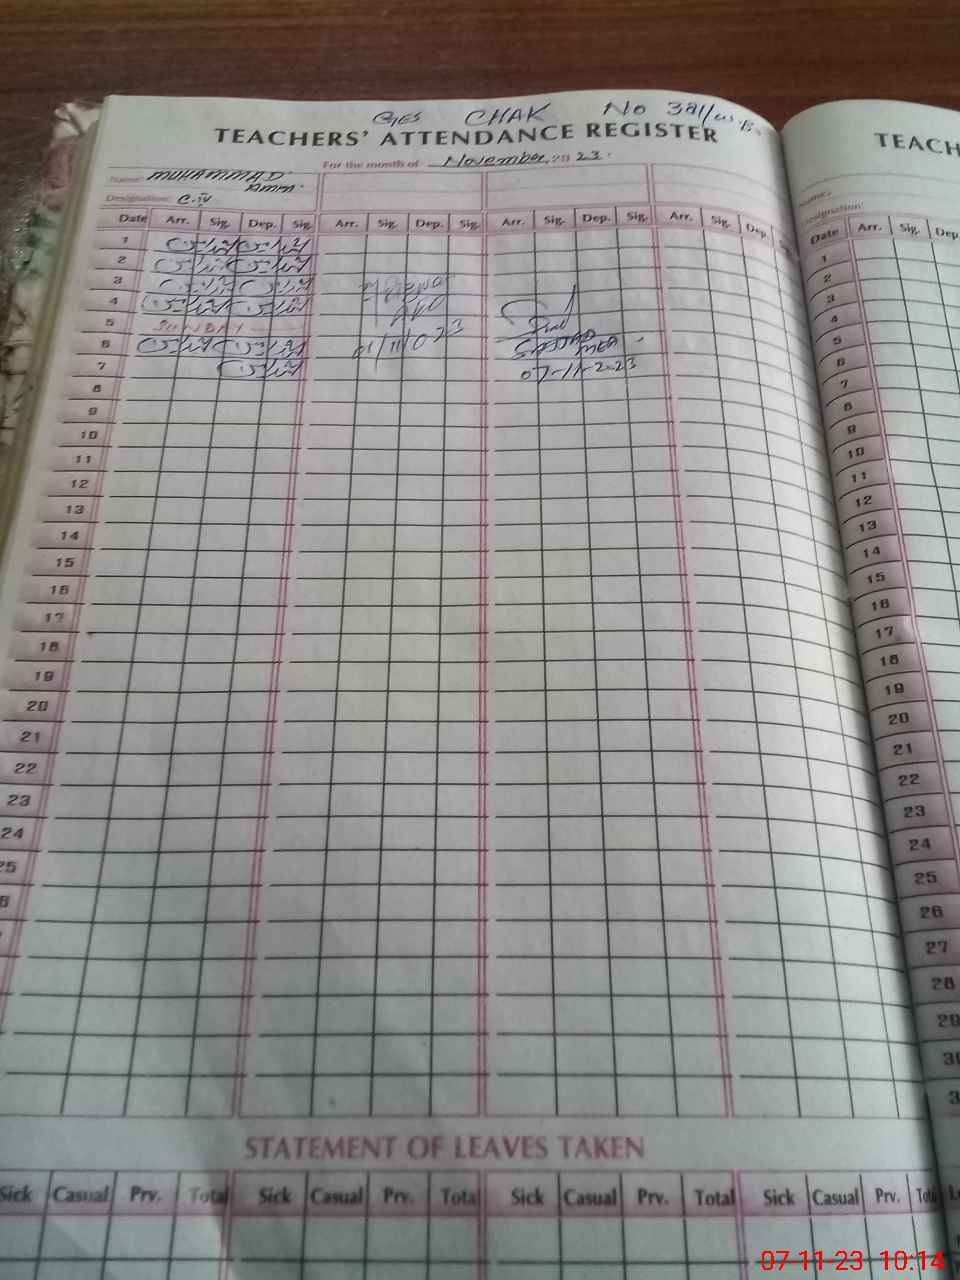 GES CHAK No 381/W.B.
TEACHERS' ATTENDANCE REGISTER
For the month of November, 20 23.
Name: MUHAMMAD
Designation: C.IV
Date Arr. Sig. Dep. Sig Arr. Sig. Dep. Sig. Arr. Sig. Dep. Sig. Arr. Sig. Dep.
1
2
3
4
5 SUNDAY
6
7 07-11-2023
8
9
10
11
12
13
14
15
16
17
18
19
20
21
22
23
24
25
STATEMENT OF LEAVES TAKEN
Sick Casual Prv. Total Sick Casual Prv. Total Sick Casual Prv. Total Sick Casual Prv. Total
TEACH
Name:
Designation:
Date Arr. Sig. Dep
1
2
3
4
5
6
7
8
9
10
11
12
13
14
15
16
17
18
19
20
21
22
23
24
25
26
27
28
29
07-11-23 10:14